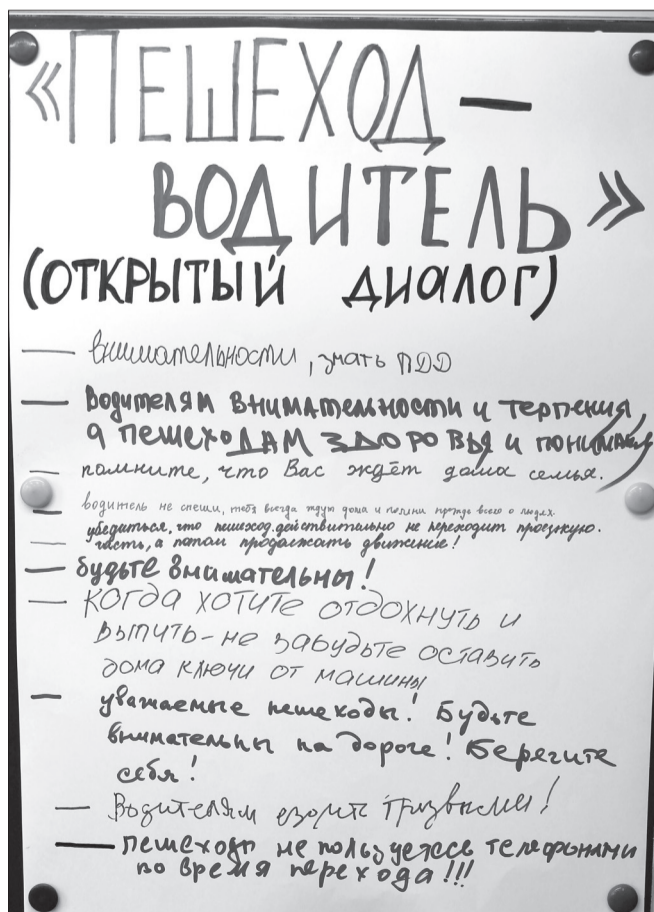 «ПЕШЕХОД —
ВОДИТЕЛЬ»
(ОТКРЫТЫЙ ДИАЛОГ)
— внимательности, знать ПДД
— Водителям внимательности и терпения,
а пешеходам здоровья и понимания
— помните, что Вас ждёт дома семья.
— водитель не спеши, тебя всегда ждут дома и помни прежде всего о людях.
убедиться, что пешеход действительно не переходит проезжую.
— часть, а потом продолжать движение!
— будьте внимательны!
— КОГДА ХОТИТЕ ОТДОХНУТЬ И
ВЫПИТЬ - НЕ ЗАБУДЬТЕ ОСТАВИТЬ
ДОМА КЛЮЧИ ОТ МАШИНЫ
— уважаемые пешеходы! Будьте
внимательны на дороге! Берегите
себя!
— Водителям ездить трезвыми!
— пешеходы не пользуетесь телефонами
во время перехода!!!